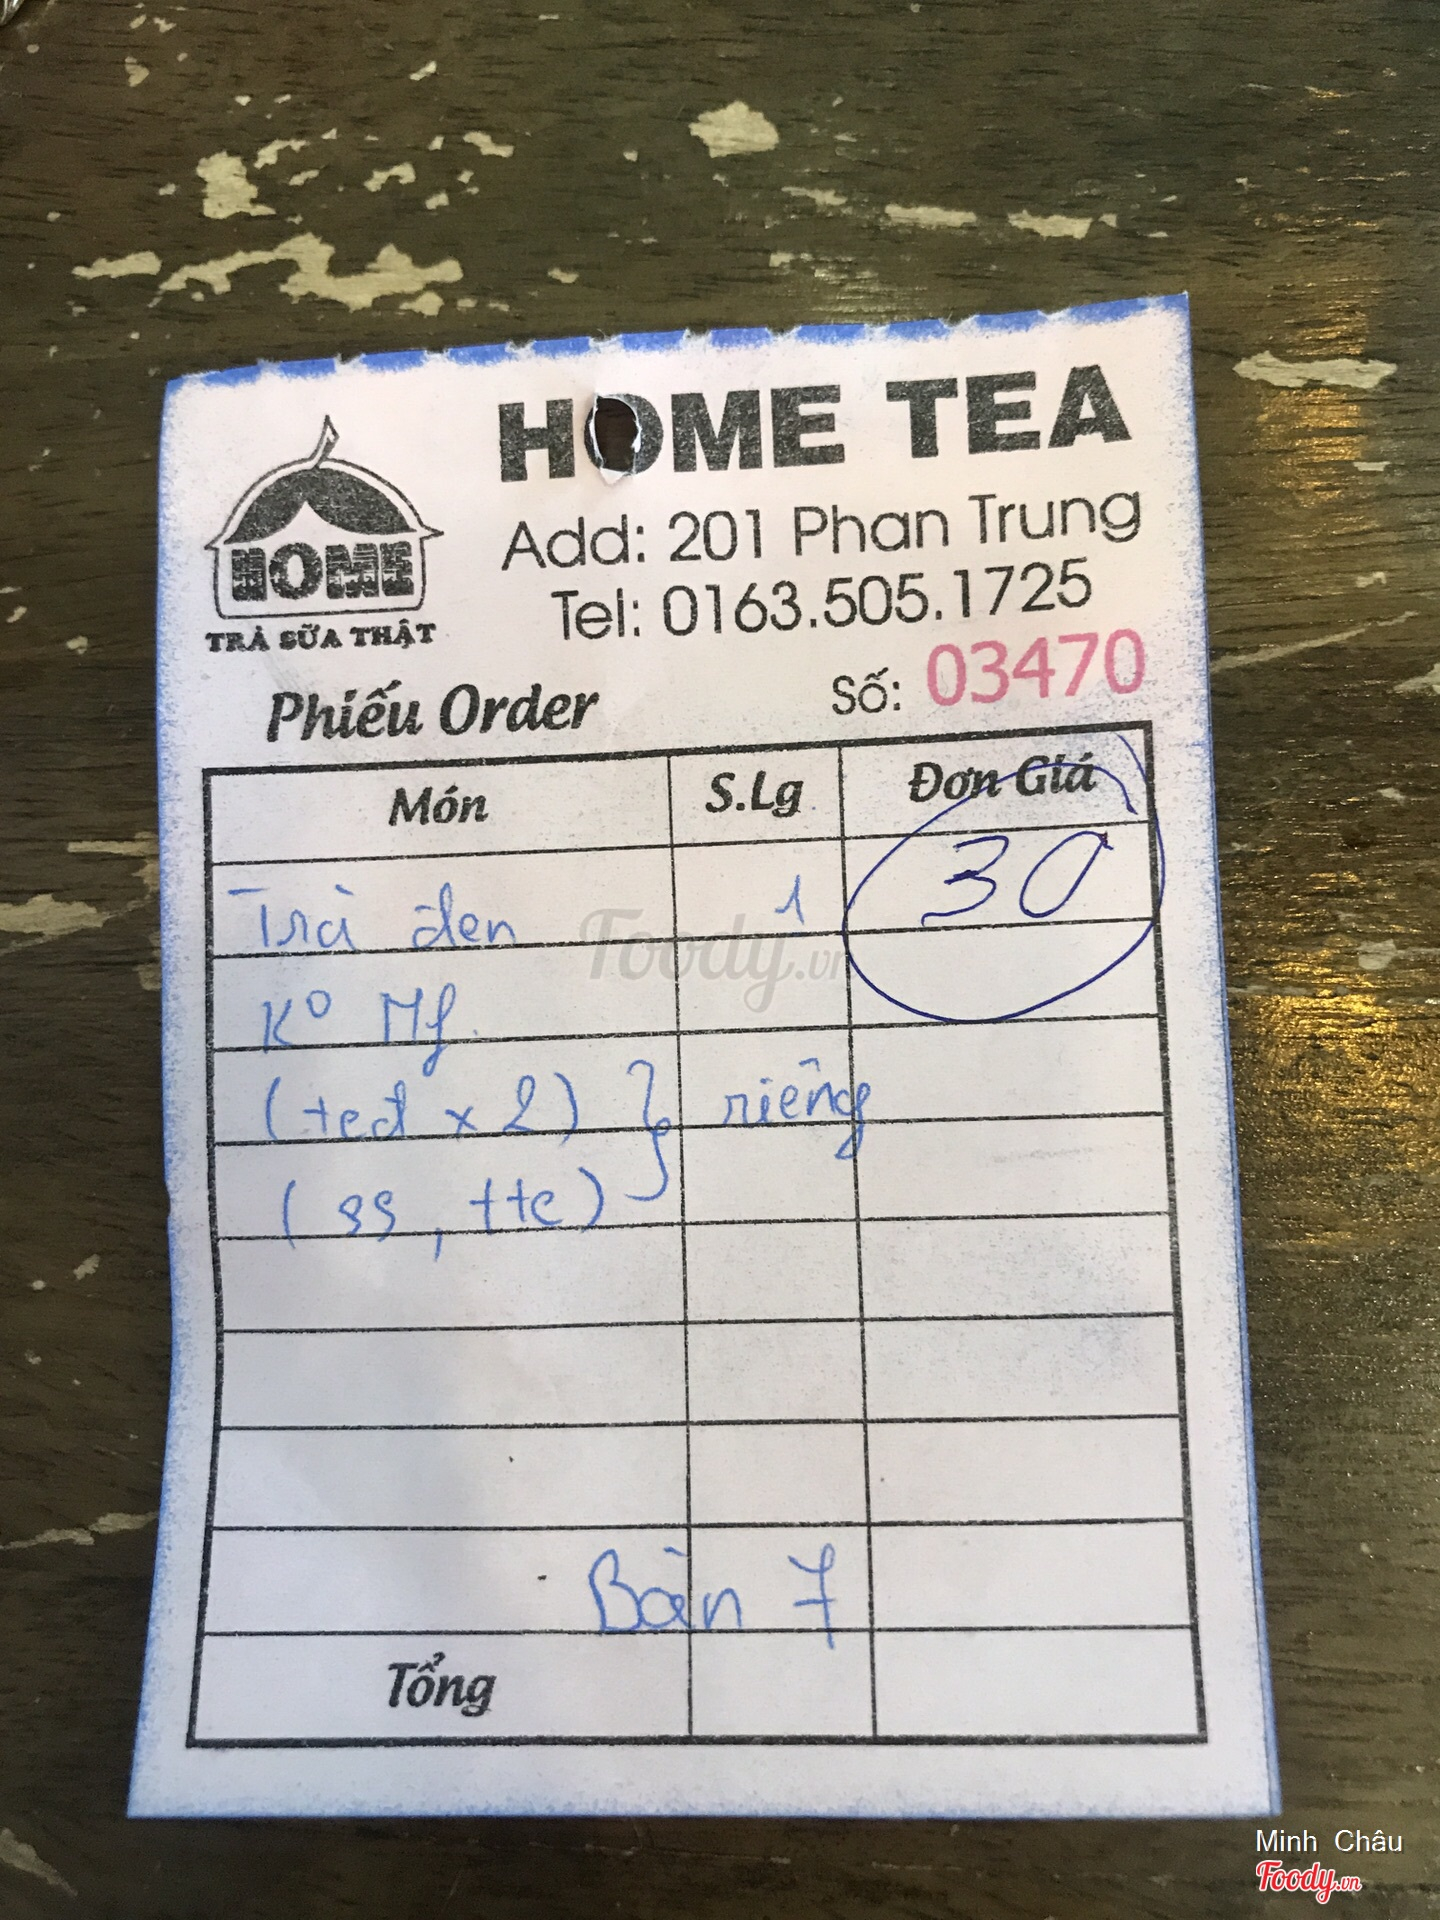 HOME TEA
HOME
TRÀ SỮA THẬT
Add: 201 Phan Trung
Tel: 0163.505.1725
Phiếu Order
Số: 03470
Món S.Lg Đơn Giá
Trà đen 1 30
K° Mf.
(tcđ x 2) } riêng
(ss, ttc)
Bàn 7
Tổng
Foody.vn
Minh Châu
Foody.vn